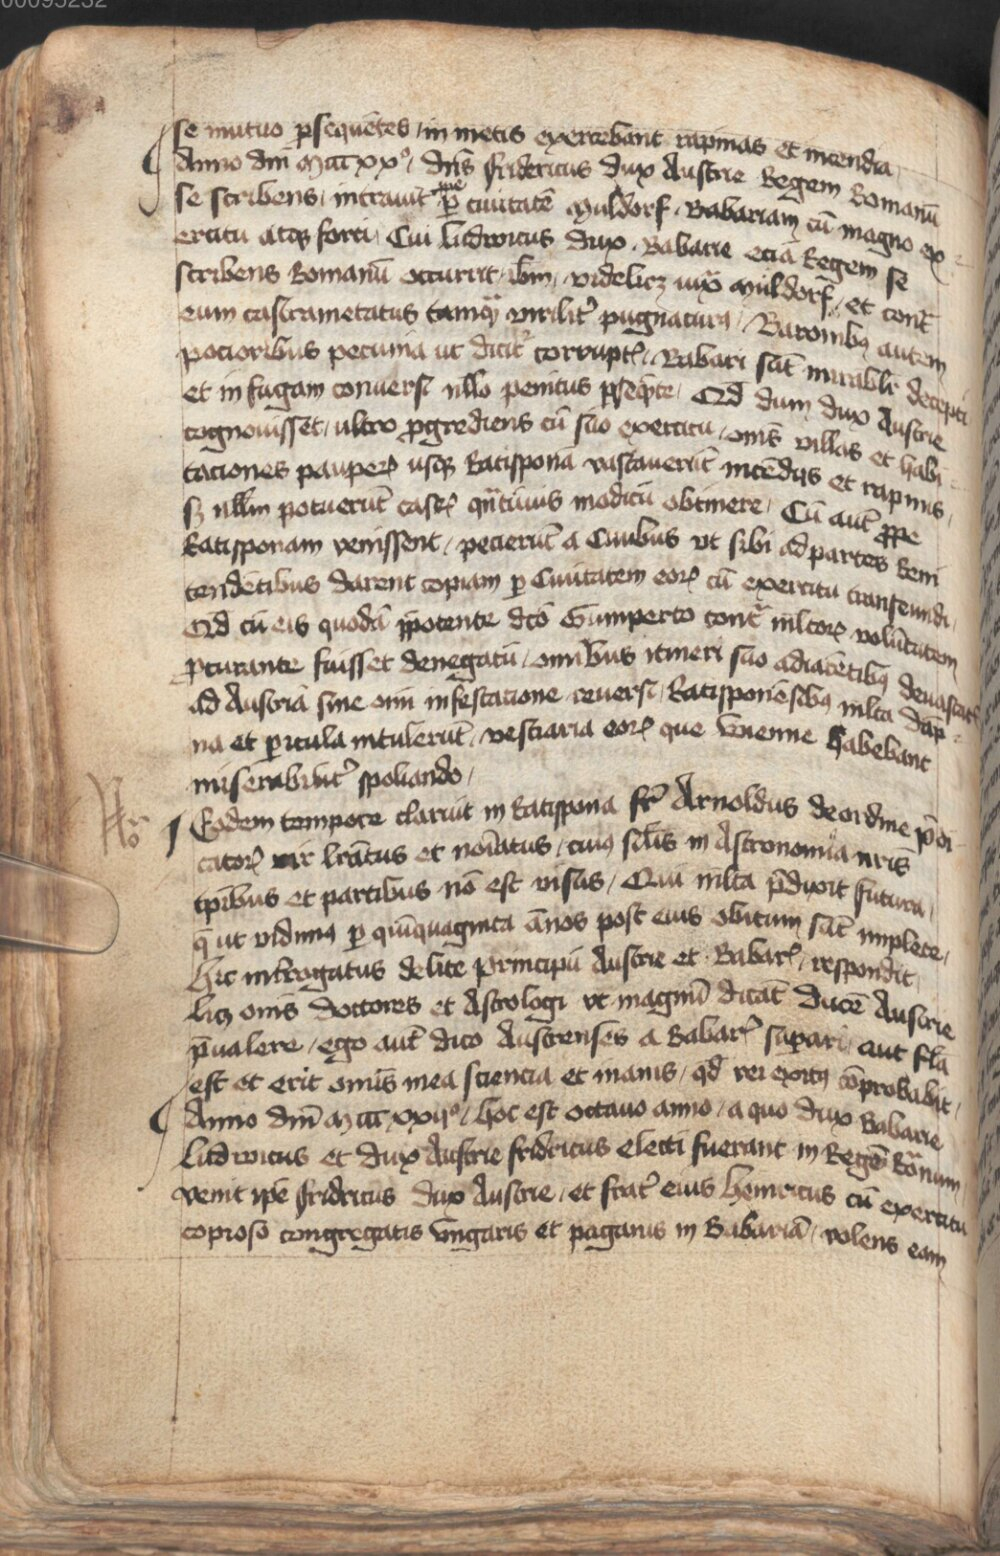 00095232
se mutuo p̄sequētes / in metis exercebant rapinas et incendia
Anno dm̄ Mcccxx° / dn̄s fridericus dux Austrie Regem Romanū
se scribens / intrauit p̄ ciuitatē Muldorf . Babariam cū magno ex
ercitu atqꝫ forti / Cui ludwicus dux . Babarie eciā Regem se
scribens Romanū occurrit / ibm̄ / videlicꝫ iux̄ Muldorf / et contᷓ
eum castrametatus tamqᷓ virilit̾ pugnaturꝰ / Baronibꝰ autem
pocioribus pecunia ut dicit̾ corrupt̄ / Babari sūt mirabilit̾ decepti
et in fugam conuersi nullo penitus p̄seq̄nte / Qd̄ dum dux Austrie
cognouisset / ultro p̄grediens cū suo exercitu / om̄s villas et habi
taciones pauperꝝ usqꝫ Ratisponā vastauerūt incēdijs et rapinis /
sꝫ nllm̄ potuerūt castꝝ qᷓntūuis modicū obtinere / Cū aut̄ ꝓpe
Ratisponam venissent / pecierūt a Ciuibus vt sibi ad partes Reni
tendētibus darent copiam p̄ Ciuitatem eorꝝ cū exercitu transeundi /
Qd̄ cū eis quodā īpotente dc̄o Gumperto contᷓ ml̄torꝝ volūtatem
p̄curante fuisset denegatū / omnibus itineri suo adiacētibꝰ deuastat̄
ad Austriā sine om̄i infestacione reuersi / Ratisponēsibꝰ ml̄ta dāp
na et p̄icula intulerūt / vestiaria eorꝝ que Wienne habebant
miserabilit̾ spoliando /
Eodem tempore claruit in Ratispona fr̄ Arnoldus de ordine p̄di
catorꝝ vir lr̄atus et noīatus / cuiꝰ sil̄is in Astronomia nr̄is
tp̄ribus et partibus nō est visus / Qui ml̄ta p̄dixit futura /
q̄ ut vidimꝰ p̄ quīquaginta ānos post eius obitum sūt implete /
Hic int̾rogatus de lite principū Austrie et Babarꝝ / respondit
licꝫ om̄s doctores et Astrologi vt magnū dicāt ducē Austrie
p̄ualere / ego aut̄ dico Austrenses a Babarꝝ sup̄ari / aut fl̄a
est et erit omīs mea sciencia et inanis / qd̄ rei exitꝰ cōprobabit /
Anno dm̄ Mcccxxij° / hoc est octauo anno / a quo dux Babarie
ludwicus et dux Austrie fridricus electi fuerant in Regē Rōnum
venit ip̄e fridricus dux Austrie / et frat̾ eius heinricus cū exercitu
copioso congregatis Vngaris et paganis in Babariā / volens eam